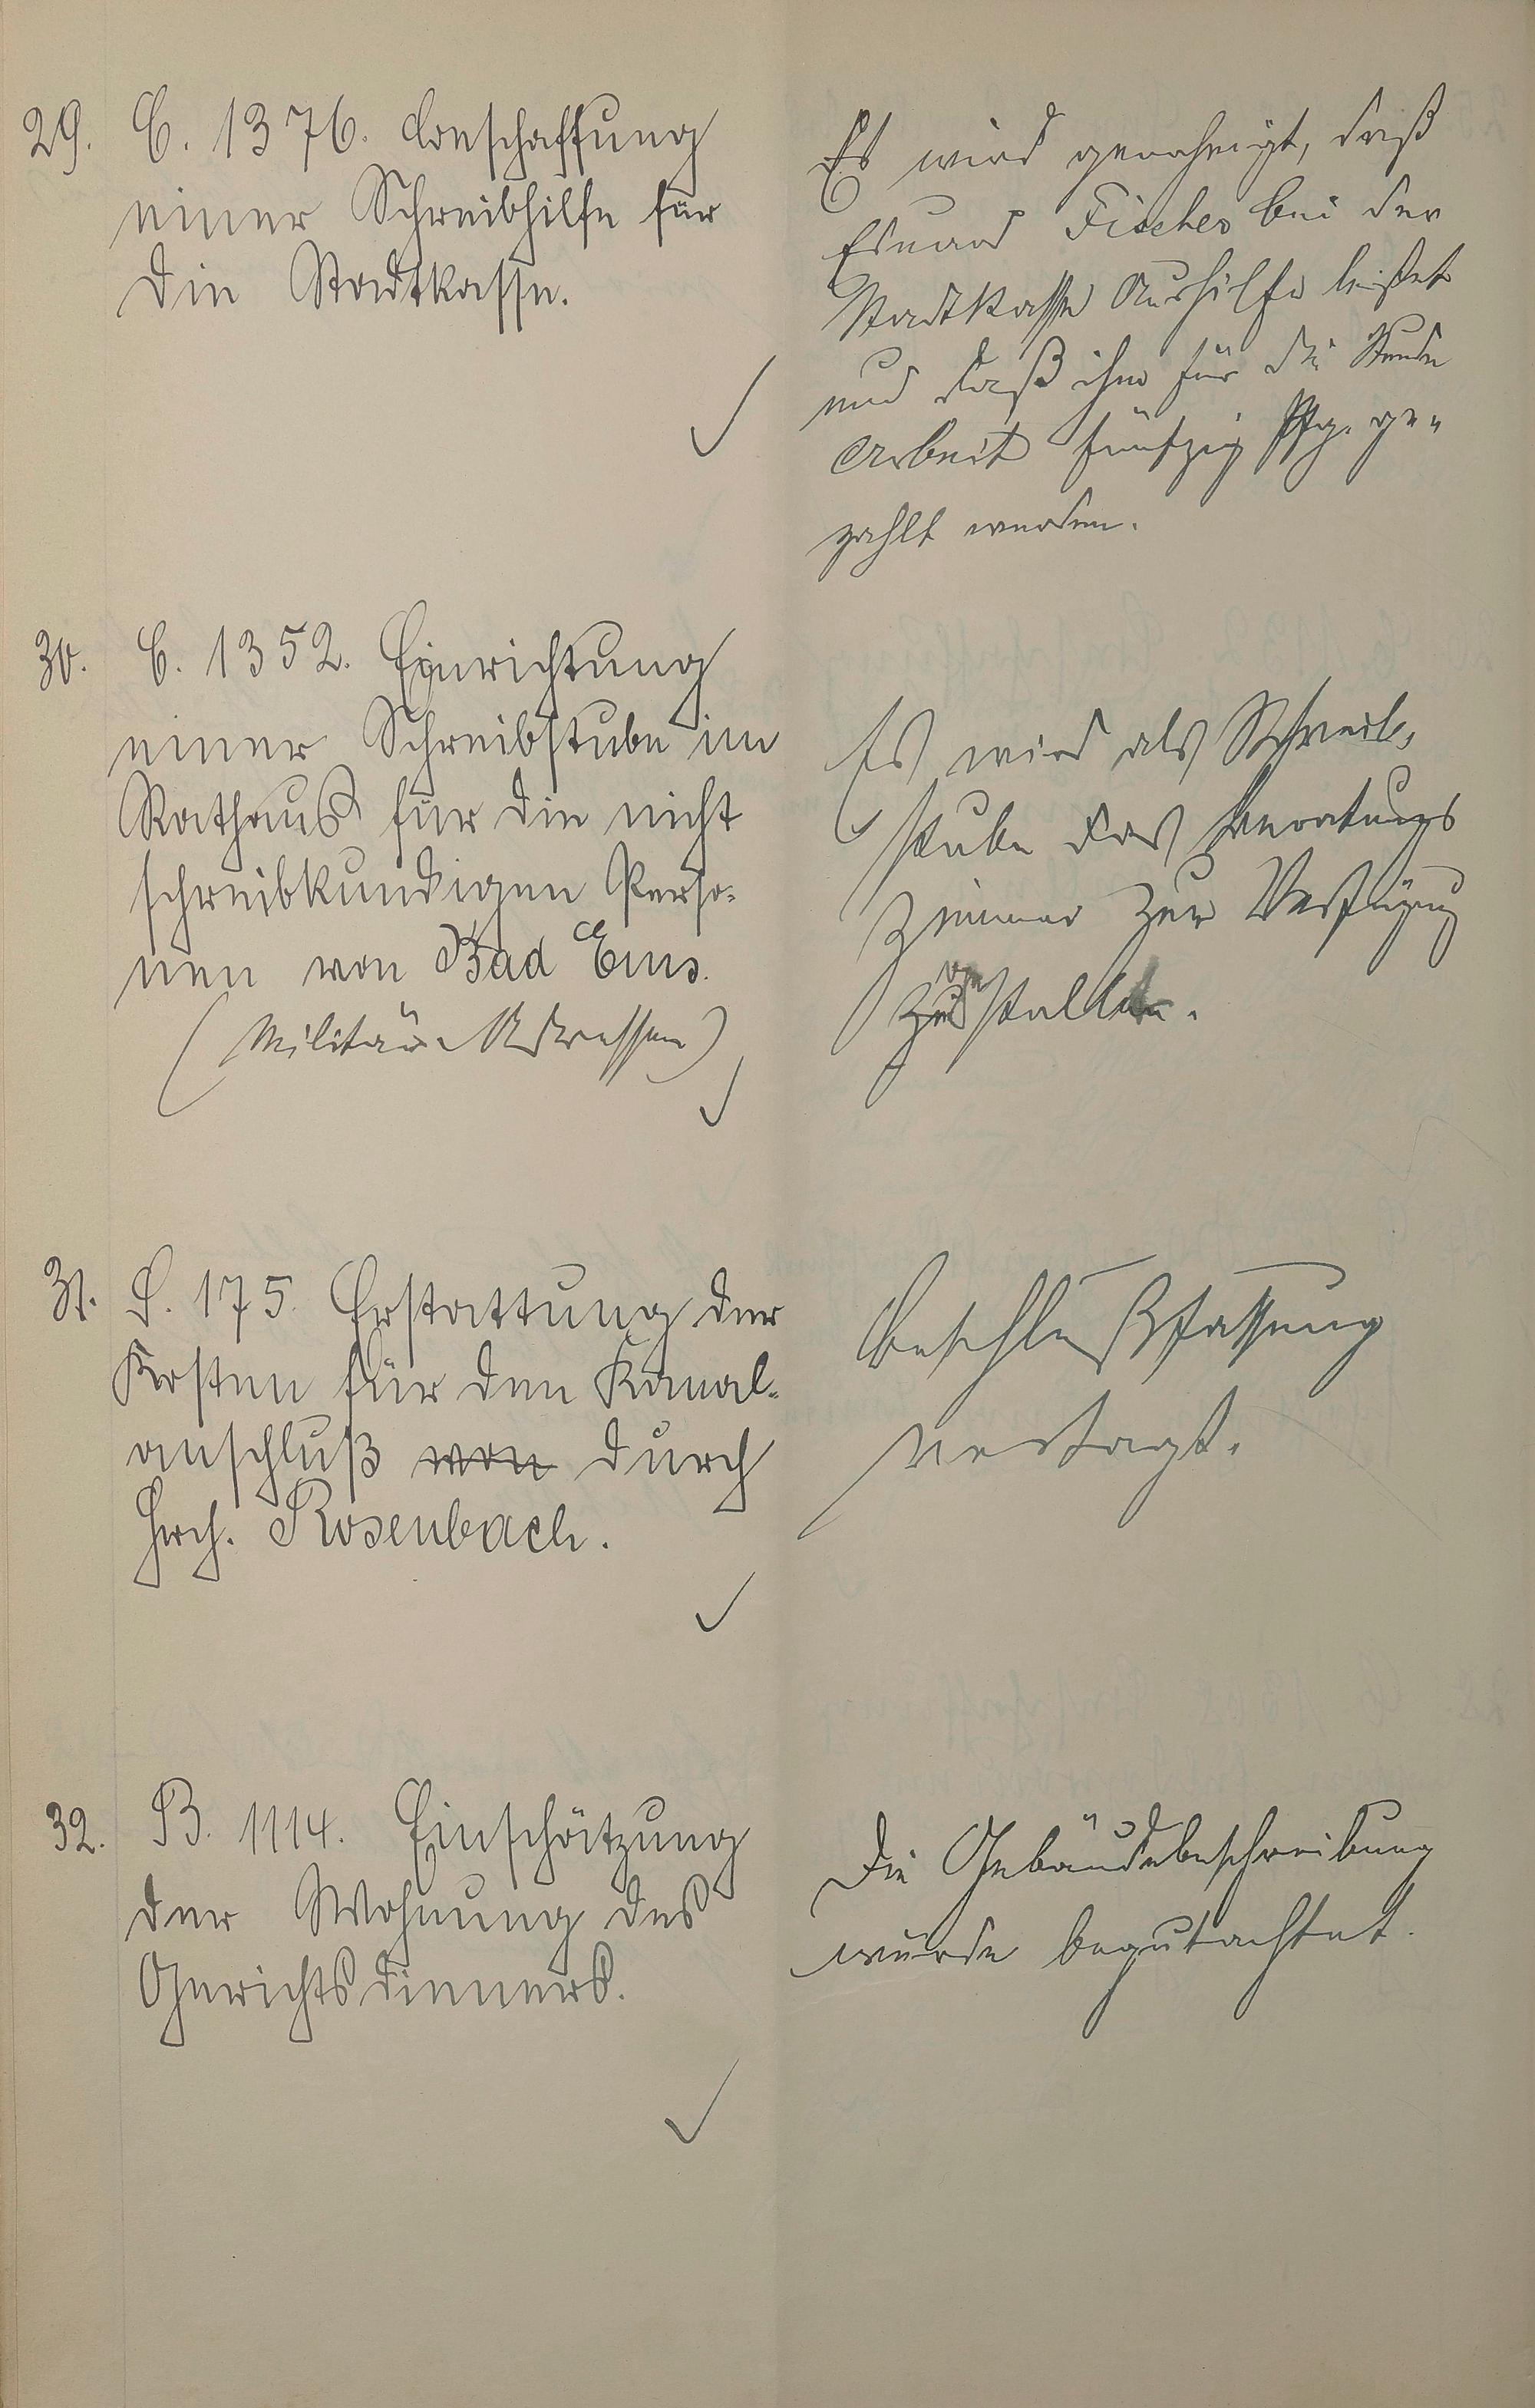 29. C. 1376. Anschaffung
einer Schreibhilfe für
die Stadtkasse.
Es wird genehmigt, daß
Eduard Fischer bei der
Stadtkasse Aushilfe leistet
und daß ihm für die Stunde
Arbeit fünfzig Pfg. ge-
zahlt werden.
30. C. 1352. Einrichtung
einer Schreibstube im
Rathaus für die nicht
schreibkundigen Perso-
nen von Bad Ems.
(Militär-Adressen)
Es wird als Schreib-
stube das Beratungs
zimmer zur Verfügung
gestellt.
31. S. 175. Erstattung der
Kosten für den Kanal-
anschluß von durch
Hrch. Rosenbach.
Beschlußfassung
vertagt.
32. B. 1114. Einschätzung
der Wohnung des
Gerichtsdieners.
Die Gebäudebeschreibung
wurde begutachtet.